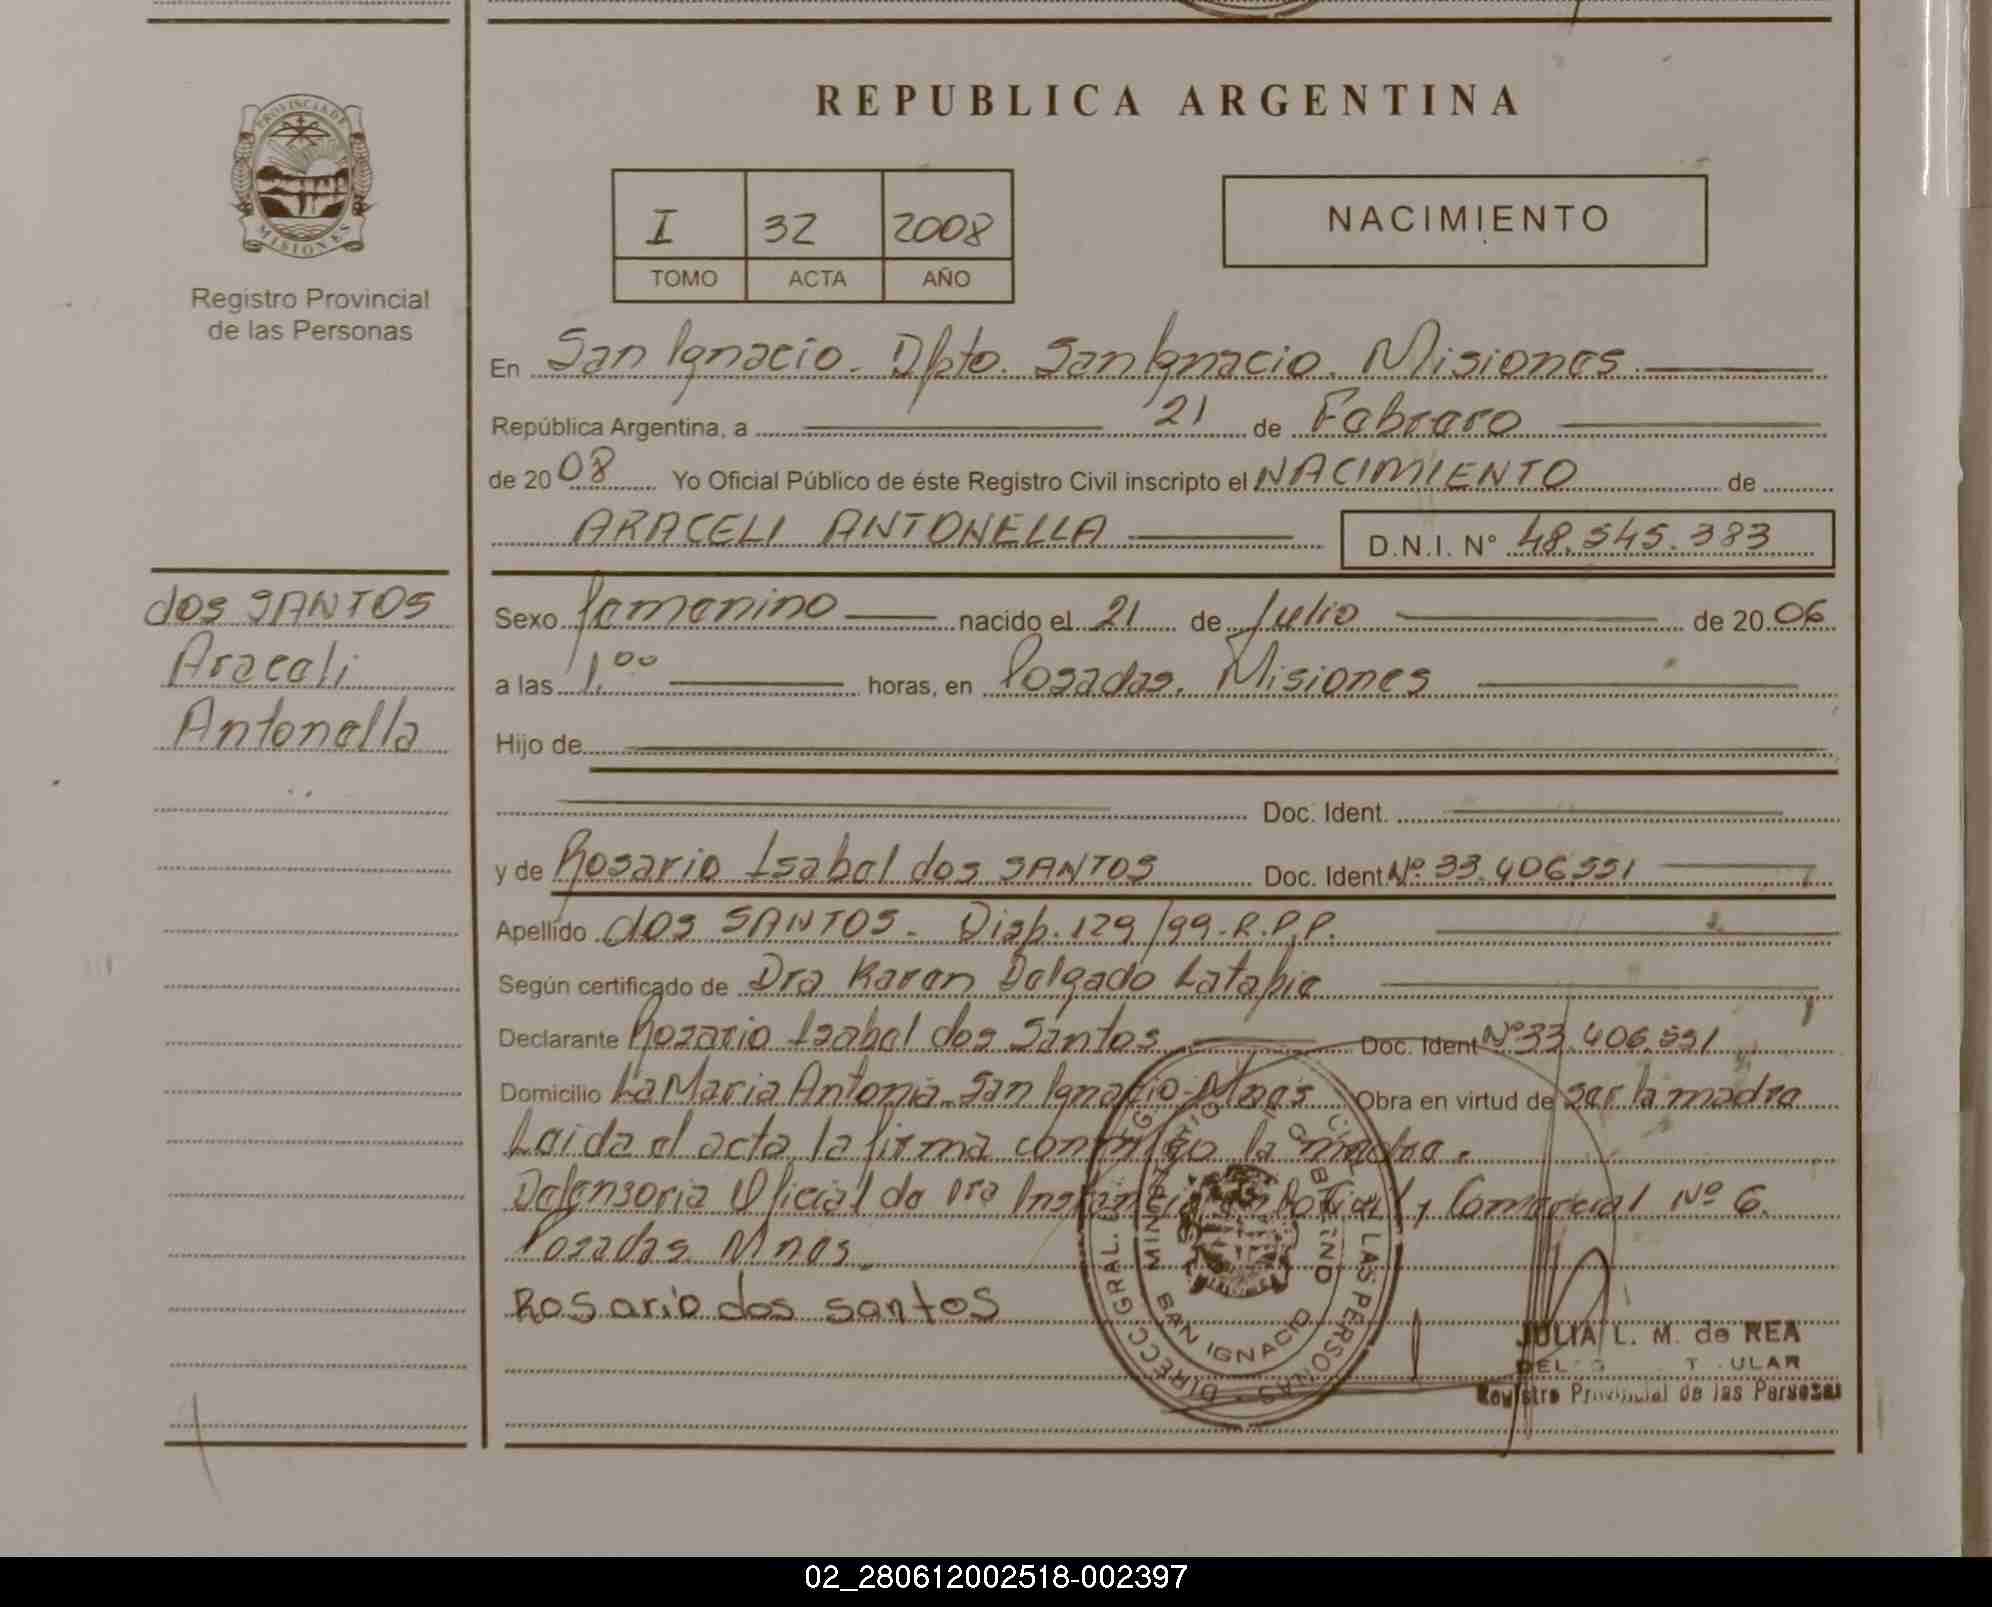 PROVINCIA DE
MISIONES
Registro Provincial
de las Personas
dos SANTOS
Araceli
Antonella
REPUBLICA ARGENTINA
I 32 2008
TOMO ACTA AÑO
NACIMIENTO
En San Ignacio. Dpto. San Ignacio. Misiones
República Argentina, a 21 de Febrero
de 2008 Yo Oficial Público de éste Registro Civil inscripto el NACIMIENTO de
ARACELI ANTONELLA D.N.I. N° 48.545.383
Sexo femenino nacido el 21 de Julio de 2006
a las 1.00 horas, en Posadas. Misiones
Hijo de
Doc. Ident.
y de Rosario Isabel dos SANTOS Doc. Ident Nº 33.406.551
Apellido dos SANTOS. Disp. 129/99-R.P.P.
Según certificado de Dra Karen Delgado Latapie
Declarante Rosario Isabel dos Santos Doc. Ident Nº 33.406.551
Domicilio La Maria Antonia. San Ignacio-Mnes Obra en virtud de ser la madre
Leida el acta, la firma conmigo la madre.
Defensoria Oficial de 1ra Instancia Civil y Comercial Nº 6.
Posadas Mnes.
Rosario dos santos
DIRECC GRAL. LAS PERSONAS
SAN IGNACIO
JULIA L. M. de REA
Registro Provincial de las Personas
02_280612002518-002397